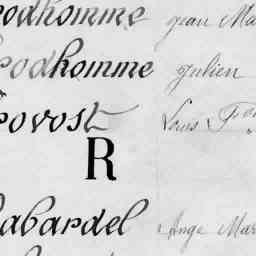 rodhomme Jean Ma
rodhomme Julien
rovost Louis Fran
R
abardel Ange Mar